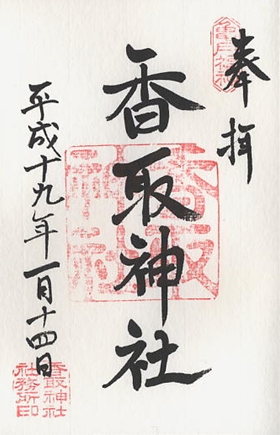 奉拝
香取神社
平成十九年一月十四日
香取神社
香取神社
社務所印